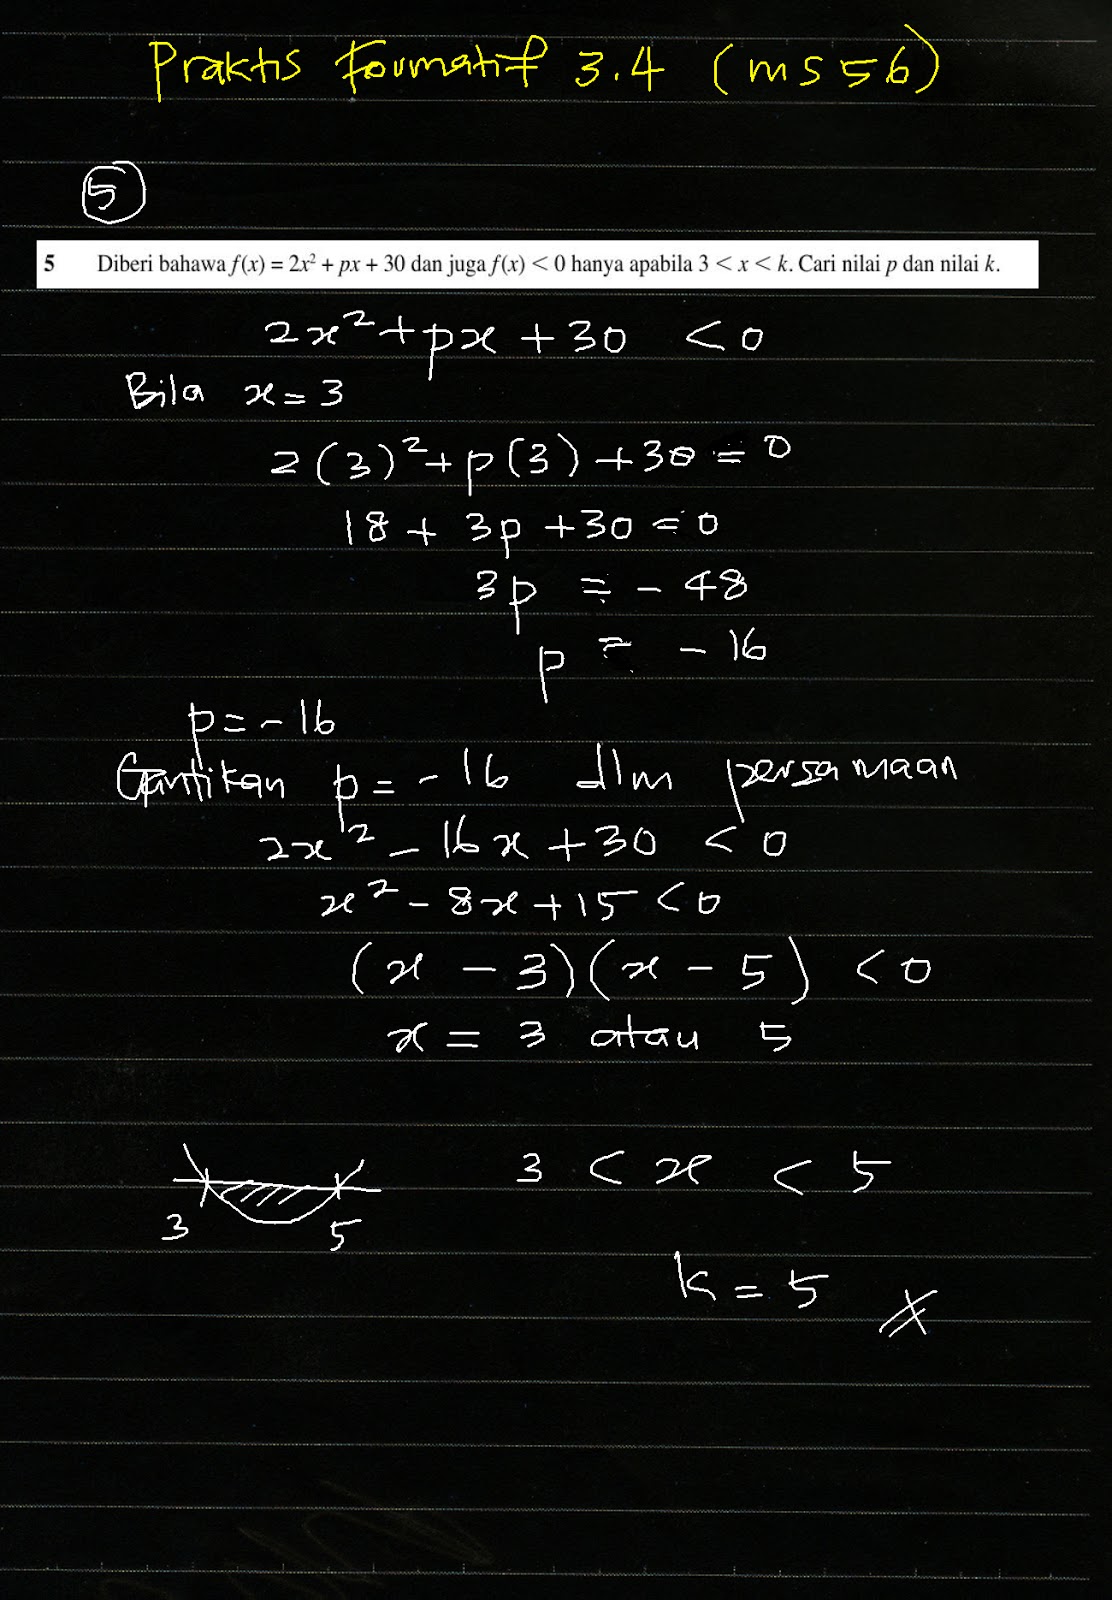 Praktis Formatif 3.4 (ms 56)
5
5 Diberi bahawa f(x) = 2x² + px + 30 dan juga f(x) < 0 hanya apabila 3 < x < k. Cari nilai p dan nilai k.
2x² + px + 30 < 0
Bila x = 3
2(3)² + p(3) + 30 = 0
18 + 3p + 30 = 0
3p = - 48
p = - 16
p = - 16
Gantikan p = - 16 dlm persamaan
2x² - 16x + 30 < 0
x² - 8x + 15 < 0
(x - 3)(x - 5) < 0
x = 3 atau 5
3 < x < 5
3 5
k = 5